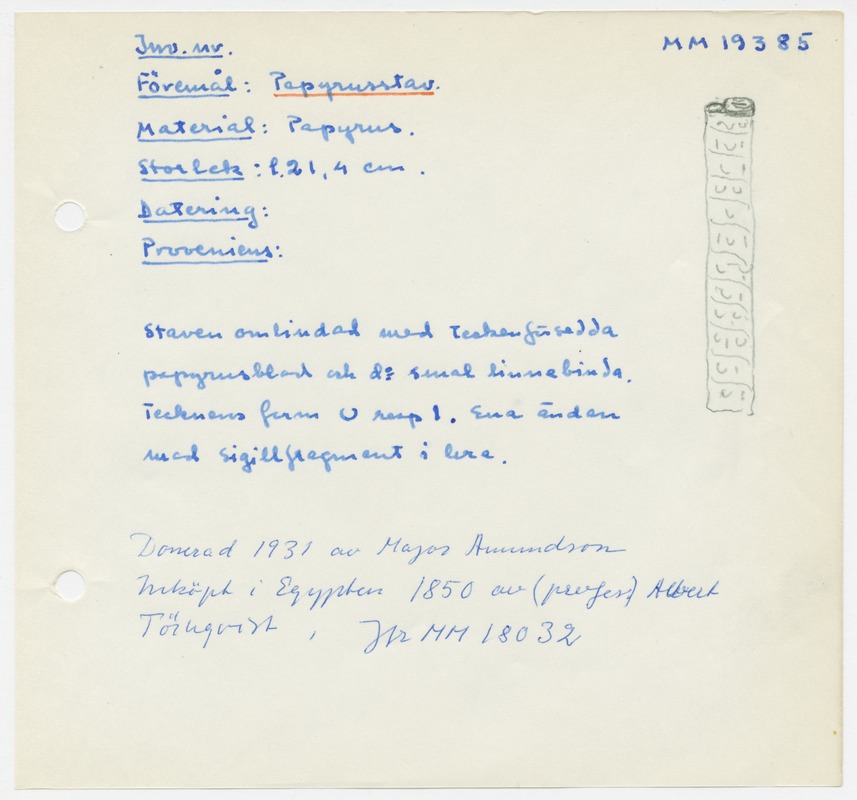 Inv. nr. MM 19385
Föremål: Papyrusstav.
Material: Papyrus.
Storlek: l. 21,4 cm.
Datering:
Proveniens:
Staven omlindad med teckenförsedda
papyrusblad och d:o smal linnebinda.
Tecknens form U resp I. Ena ändan
med sigillfragment i lera.
Donerad 1931 av Major Amundson
Inköpt i Egypten 1850 av (profes) Albert
Törnqvist, Jfr MM 18032